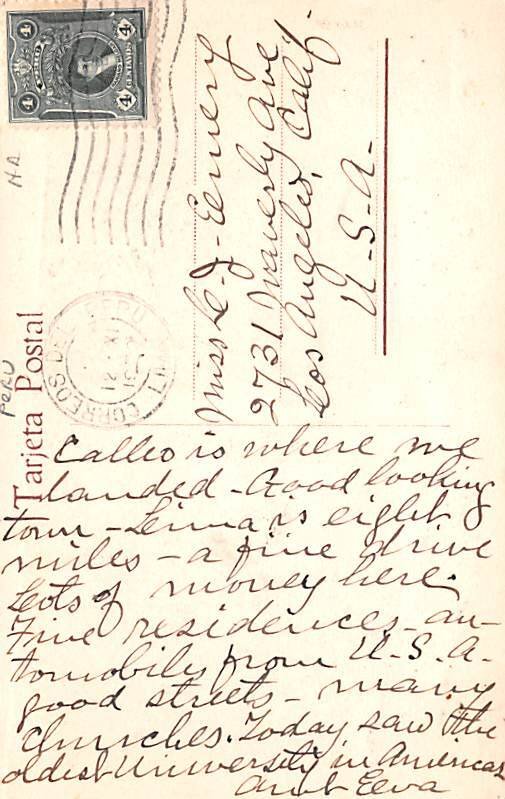 4 4
PERU
CENTAVOS
4 4
HR
PERU
Tarjeta Postal
CORREOS DEL PERU
Miss L-J-Emery
2731 Waverly Ave
Los Angeles, Calif.
U-S-A-
Calleo is where we
landed - Good looking
town - Lima is eight
miles - a fine drive
Lots of money here.
Fine residences - au-
tomobiles from U-S.A-
good streets - many
churches. Today saw the
oldest University in Americas
Aunt Eeva